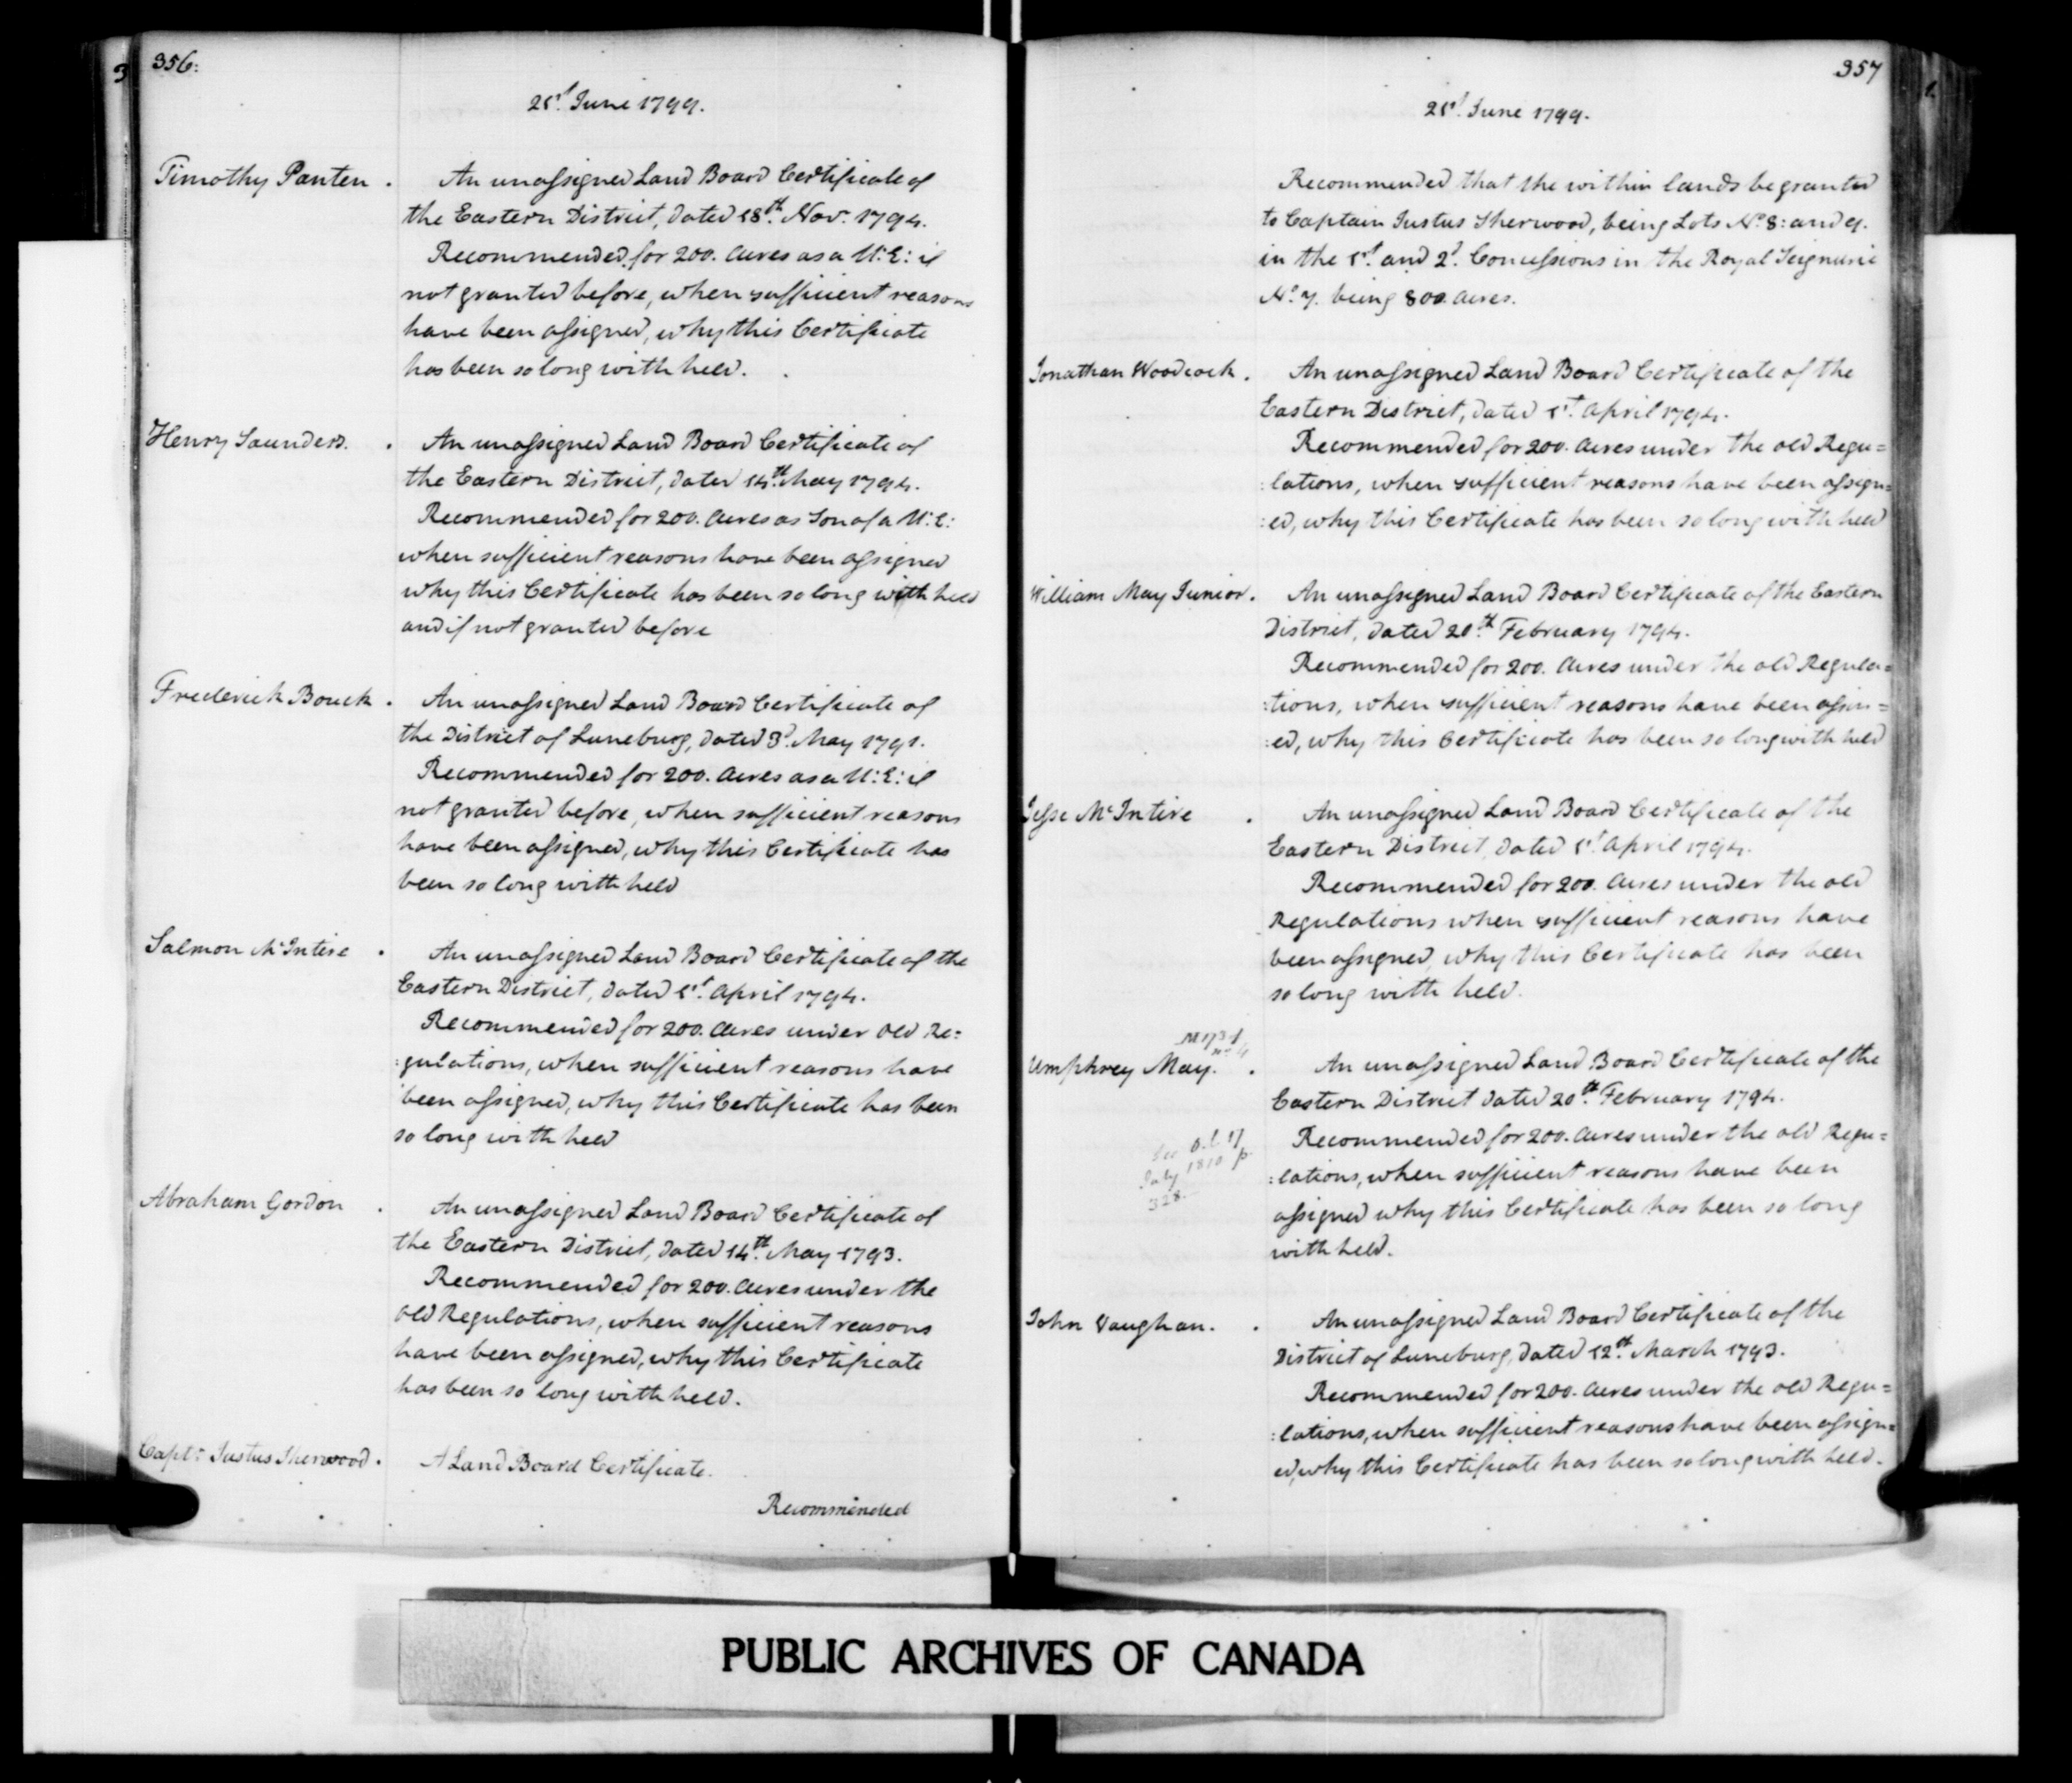 356.
21st June 1799.
Timothy Panten.
An unassigned Land Board Certificate of
the Eastern District, dated 18th. Nov. 1794.
Recommended for 200. Acres as a U: E: if
not granted before, when sufficient reasons
have been assigned, why this Certificate
has been so long with held.
Henry Saunders.
An unassigned Land Board Certificate of
the Eastern District, dated 14th. May 1794.
Recommended for 200. Acres as Son of a U: E:
when sufficient reasons have been assigned
why this Certificate has been so long with held
and if not granted before
Frederick Bouck.
An unassigned Land Board Certificate of
the District of Luneburg, dated 3d. May 1791.
Recommended for 200. Acres as a U: E: if
not granted before, when sufficient reasons
have been assigned, why this Certificate has
been so long with held
Salmon McIntire.
An unassigned Land Board Certificate of the
Eastern District, dated 1st. April 1794.
Recommended for 200. Acres under old Re=
:gulations, when sufficient reasons have
been assigned, why this Certificate has been
so long with held
Abraham Gordon.
An unassigned Land Board Certificate of
the Eastern District, dated 14th. May 1793.
Recommended for 200. Acres under the
old Regulations, when sufficient reasons
have been assigned, why this Certificate
has been so long with held.
Capt: Justus Sherwood.
A Land Board Certificate.
Recommended
357
21st June 1799.
Recommended that the within lands be granted
to Captain Justus Sherwood, being Lots No. 8: and 9.
in the 1st. and 2d. Concessions in the Royal Seigneurie
No. 7. being 800 Acres.
Jonathan Woodcock.
An unassigned Land Board Certificate of the
Eastern District, dated 1st. April 1794.
Recommended for 200. Acres under the old Regu=
:lations, when sufficient reasons have been assign=
:ed, why this Certificate has been so long with held
William May Junior.
An unassigned Land Board Certificate of the Eastern
District, dated 20th. February 1794.
Recommended for 200. Acres under the old Regula=
:tions, when sufficient reasons have been assin=
:ed, why this Certificate has been so long with held
Jesse McIntire.
An unassigned Land Board Certificate of the
Eastern District, dated 1st. April 1794.
Recommended for 200. Acres under the old
Regulations when sufficient reasons have
been assigned, why this Certificate has been
so long with held.
Umphrey May.
An unassigned Land Board Certificate of the
Eastern District dated 20th. February 1794.
Recommended for 200. Acres under the old Regu=
:lations, when sufficient reasons have been
assigned why this Certificate has been so long
with held.
See O.C. 17
July 1810 p.
328.
John Vaughan.
An unassigned Land Board Certificate of the
District of Luneburg, dated 12th. March 1793.
Recommended for 200. Acres under the old Regu=
:lations, when sufficient reasons have been assign=
ed, why this Certificate has been so long with held.
PUBLIC ARCHIVES OF CANADA